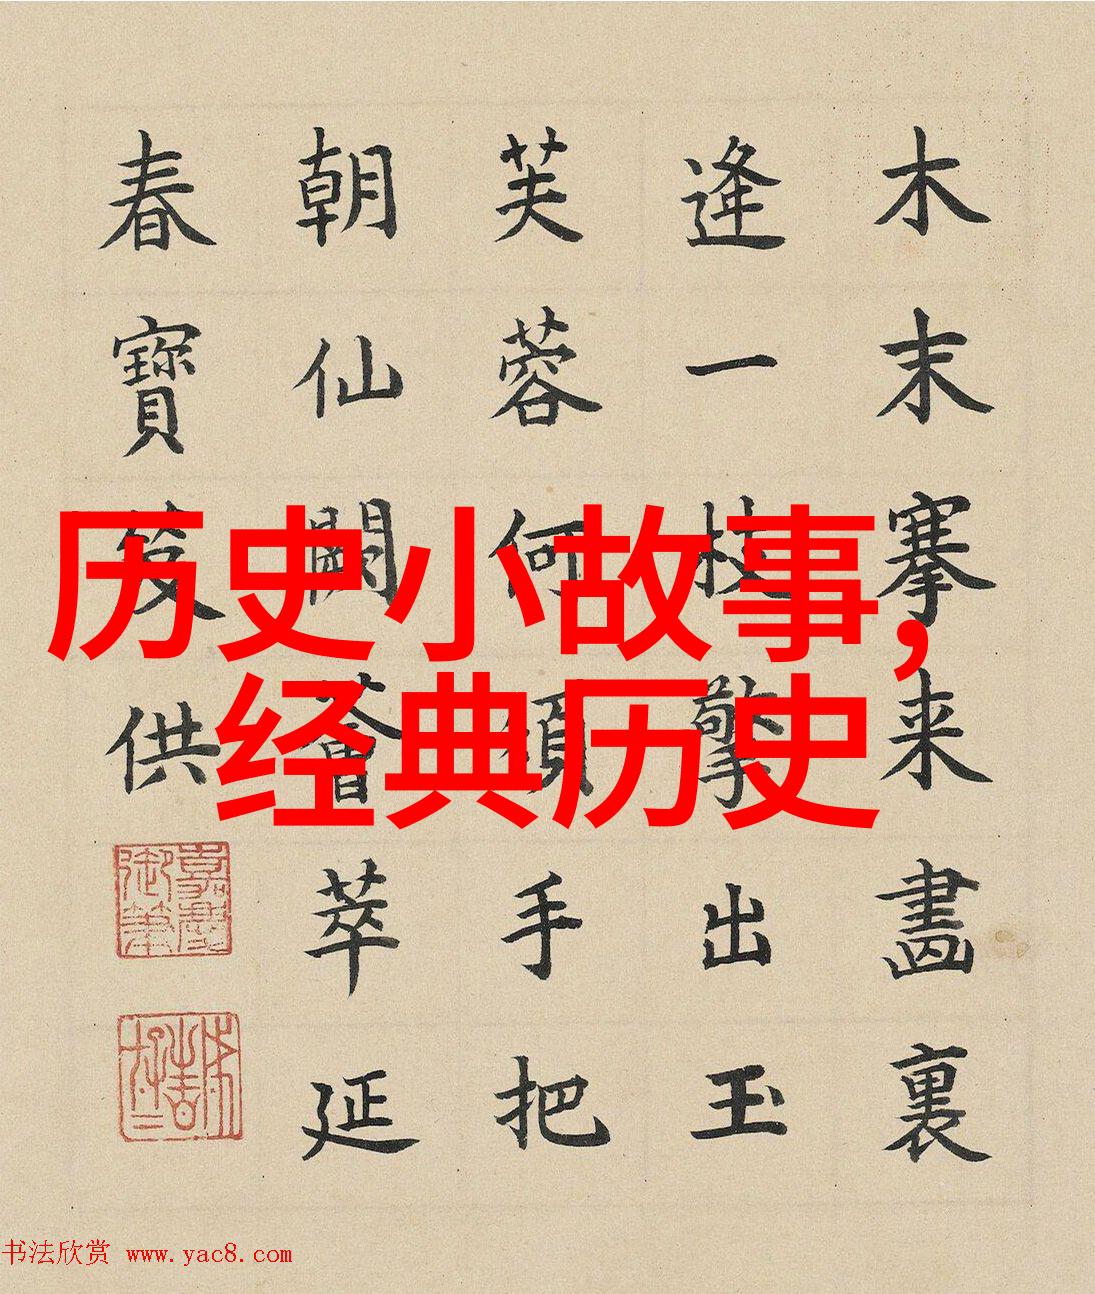 木末搴来畫裏
逢一枝擎出玉
芙蓉何須手把
朝仙闕薈萃延
春寶笈供
嘉慶御筆
历史小故事,
经典历史
书法欣赏 www.yac8.com